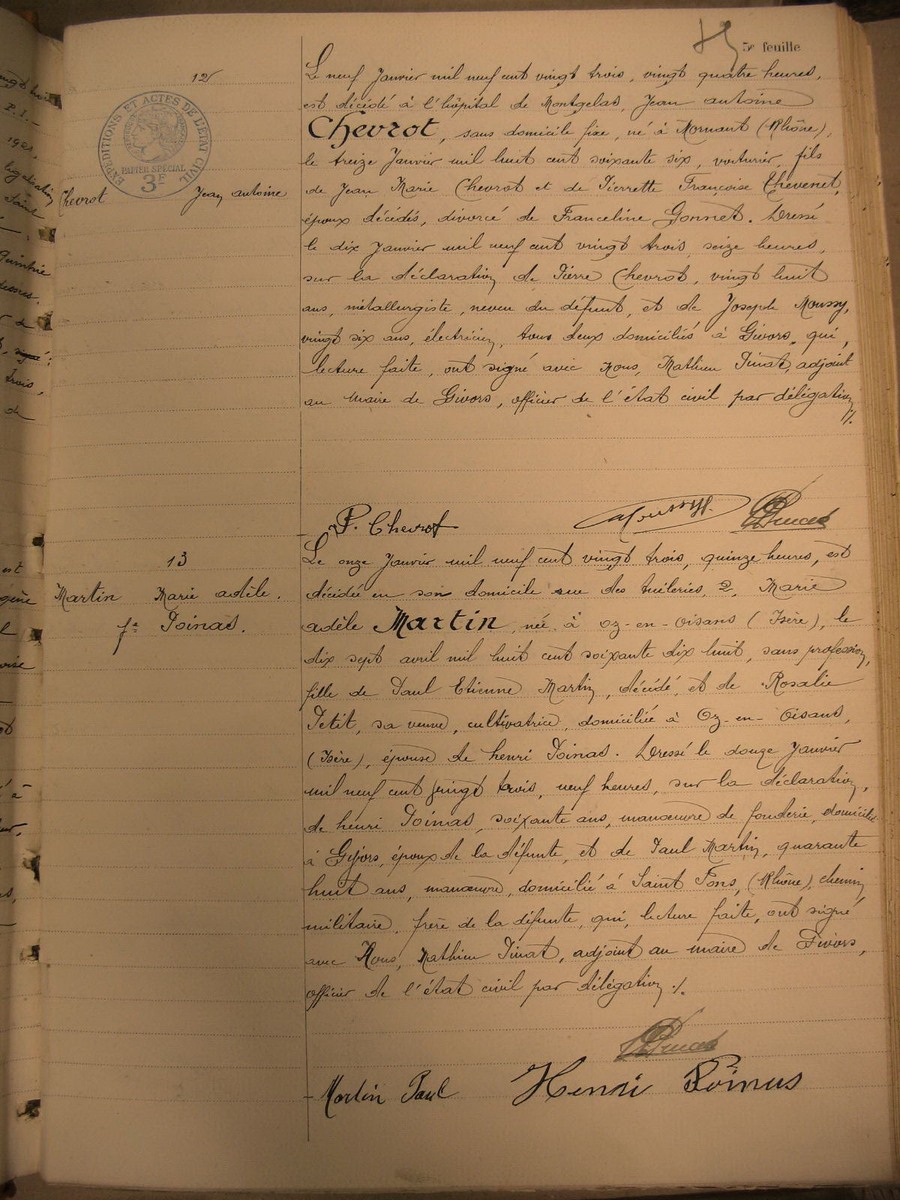 5e feuille
12
EXPEDITIONS ET ACTES DE L'ETAT CIVIL
PAPIER SPECIAL
3F
Chevrot Jean antoine
Le neuf Janvier mil neuf cent vingt trois, vingt quatre heures,
est décédé à l'hôpital de Montgelas, Jean antoine
Chevrot, sans domicile fixe, né à Mornant (Rhône),
le treize Janvier mil huit cent soixante six, voiturier, fils
de Jean Marie Chevrot et de Pierrette Françoise Thevenet,
époux décédés, divorcé de Franceline Gonnet. Dressé
le dix Janvier mil neuf cent vingt trois, seize heures,
sur la déclaration de Pierre Chevrot, vingt huit
ans, métallurgiste, neveu du défunt, et de Joseph Moussy,
vingt six ans, électricien, tous deux domiciliés à Givors, qui,
lecture faite, ont signé avec Nous, Mathieu Pinat, adjoint
au Maire de Givors, officier de l'état civil par délégation
P. Chevrot Moussy
13
Martin Marie adèle.
fe Poinas.
Le onze Janvier mil neuf cent vingt trois, quinze heures, est
décédée en son domicile rue des tuileries, 2, Marie
adèle Martin, née à Oz-en-Oisans (Isère), le
dix sept avril mil huit cent soixante dix huit, sans profession,
fille de Paul Etienne Martin, décédé, et de Rosalie
Petit, sa veuve, cultivatrice, domiciliée à Oz-en-Oisans,
(Isère), épouse de henri Poinas. Dressé le douze Janvier
mil neuf cent vingt trois, neuf heures, sur la déclaration,
de henri Poinas, soixante ans, manœuvre de fonderie, domicilié
à Givors, époux de la défunte, et de Paul Martin, quarante
huit ans, manœuvre, domicilié à Saint Fons, (Rhône), chemin
militaire, frère de la défunte, qui, lecture faite, ont signé
avec Nous, Mathieu Pinat, adjoint au maire de Givors,
officier de l'état civil par délégation ./.
Martin Paul Henri Poinas